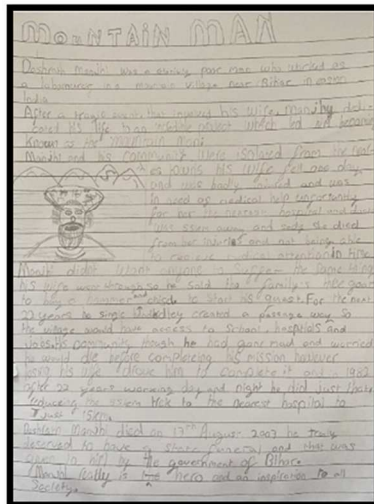 MOUNTAIN MAN
Dashrath Manjhi was a poor man who worked as
a labourer in a mountain village near Bihar in
India
After a tragic event that involved his wife, Manjhy dedi-
cated his life to an project which led him becoming
Known as the Mountain Man.
Manjhi and his community were isolated from the near-
towns his wife fell one day,
and was badly injured and was
in need of medical help unfortunatly
for her the nearest hospital and doctor
was 55km away and sadly she died
from her injuries and not being able
to recieve medical attention in time
Manjhi didn't want anyone to suffer the same thing
his wife went through so he sold the family's three goats
to buy a hammer and chisle to start his quest. For the next
22 years he single handedley created a passage way so
the village would have access to schools hospitals and
Jobs. His community though he had gone mad and worried
he would die before completing his mission however
losing his wife drove him to complete it and in 1982
after 22 years working day and night he did just that
reducing the 55km trek to the nearest hospital to
Just 15km
Dashrath Manjhi died on 17th August 2007 he truly
deserved to have a state funeral and that was
given to him by the government of Bihar.
Manjhi really is a hero and an inspiration to all
Society.